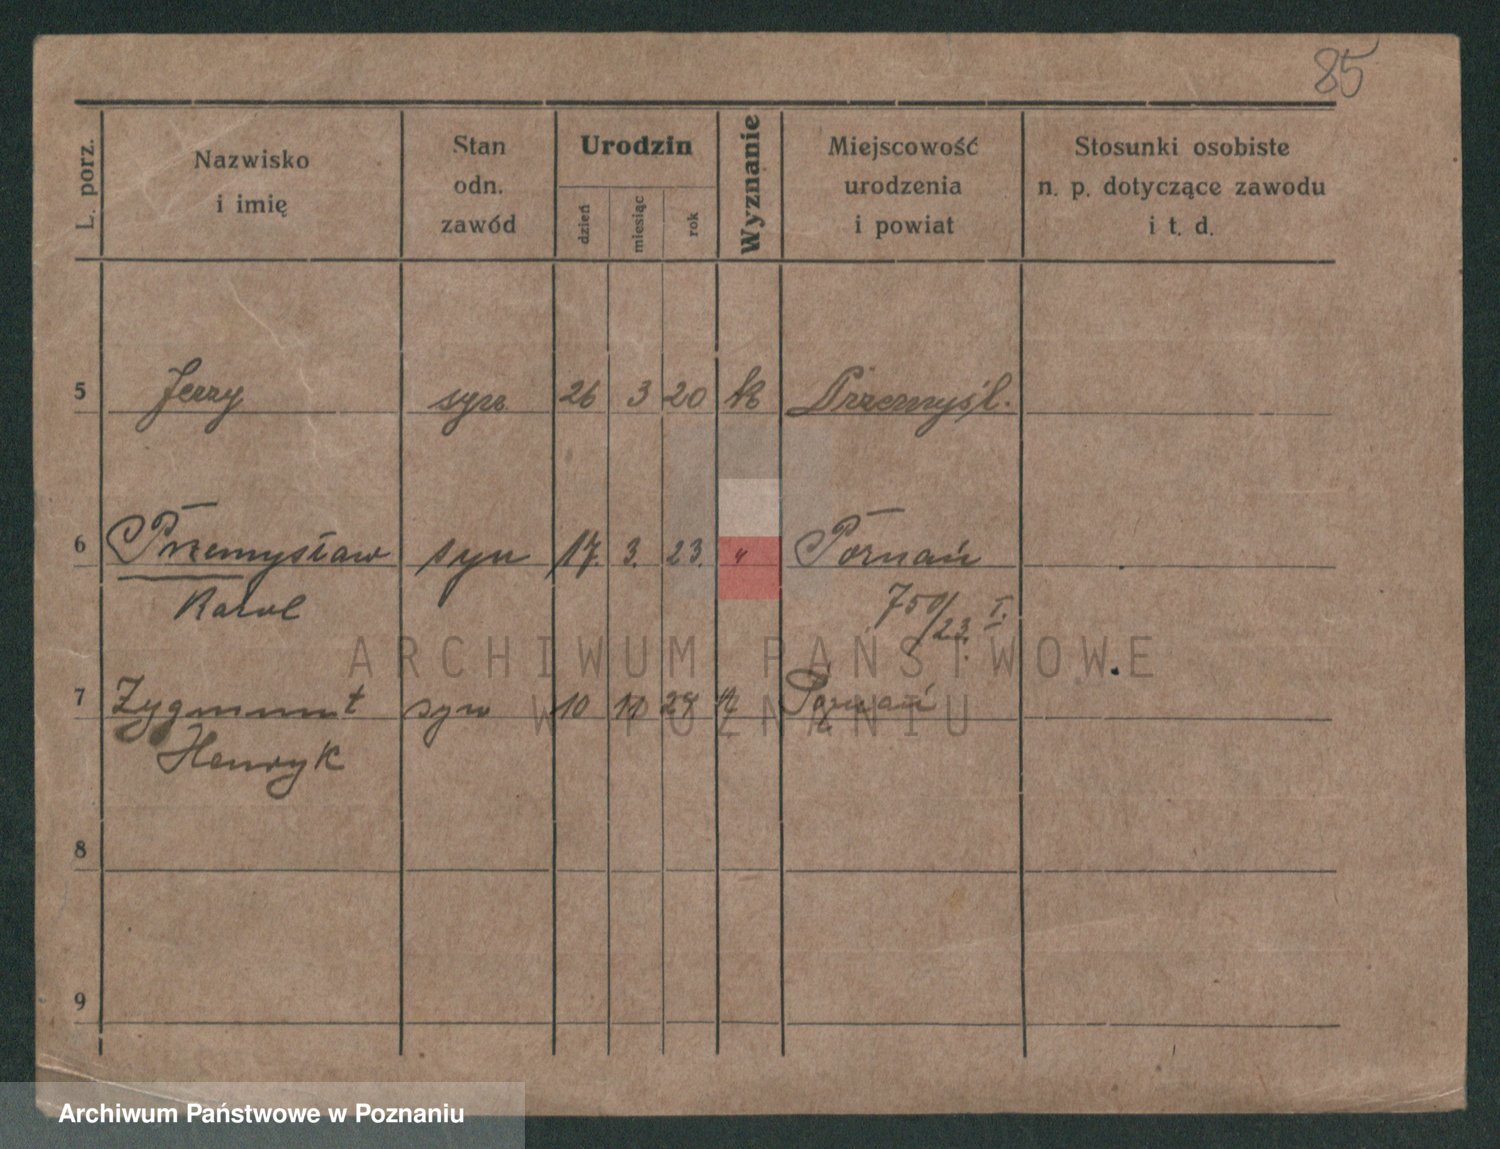 85
L. porz.
Nazwisko
i imię
Stan
odn.
zawód
Urodzin
dzień
miesiąc
rok
Wyznanie
Miejscowość
urodzenia
i powiat
Stosunki osobiste
n. p. dotyczące zawodu
i t. d.
5 Jerzy syn 26 3 20 k Przemyśl.
6 Przemysław syn 17. 3. 23. " Poznań
Karol 750/23. I.
ARCHIWUM PAŃSTWOWE
7 Zygmunt syn 10 Poznań
W POZNANIU
Henryk
8
9
Archiwum Państwowe w Poznaniu